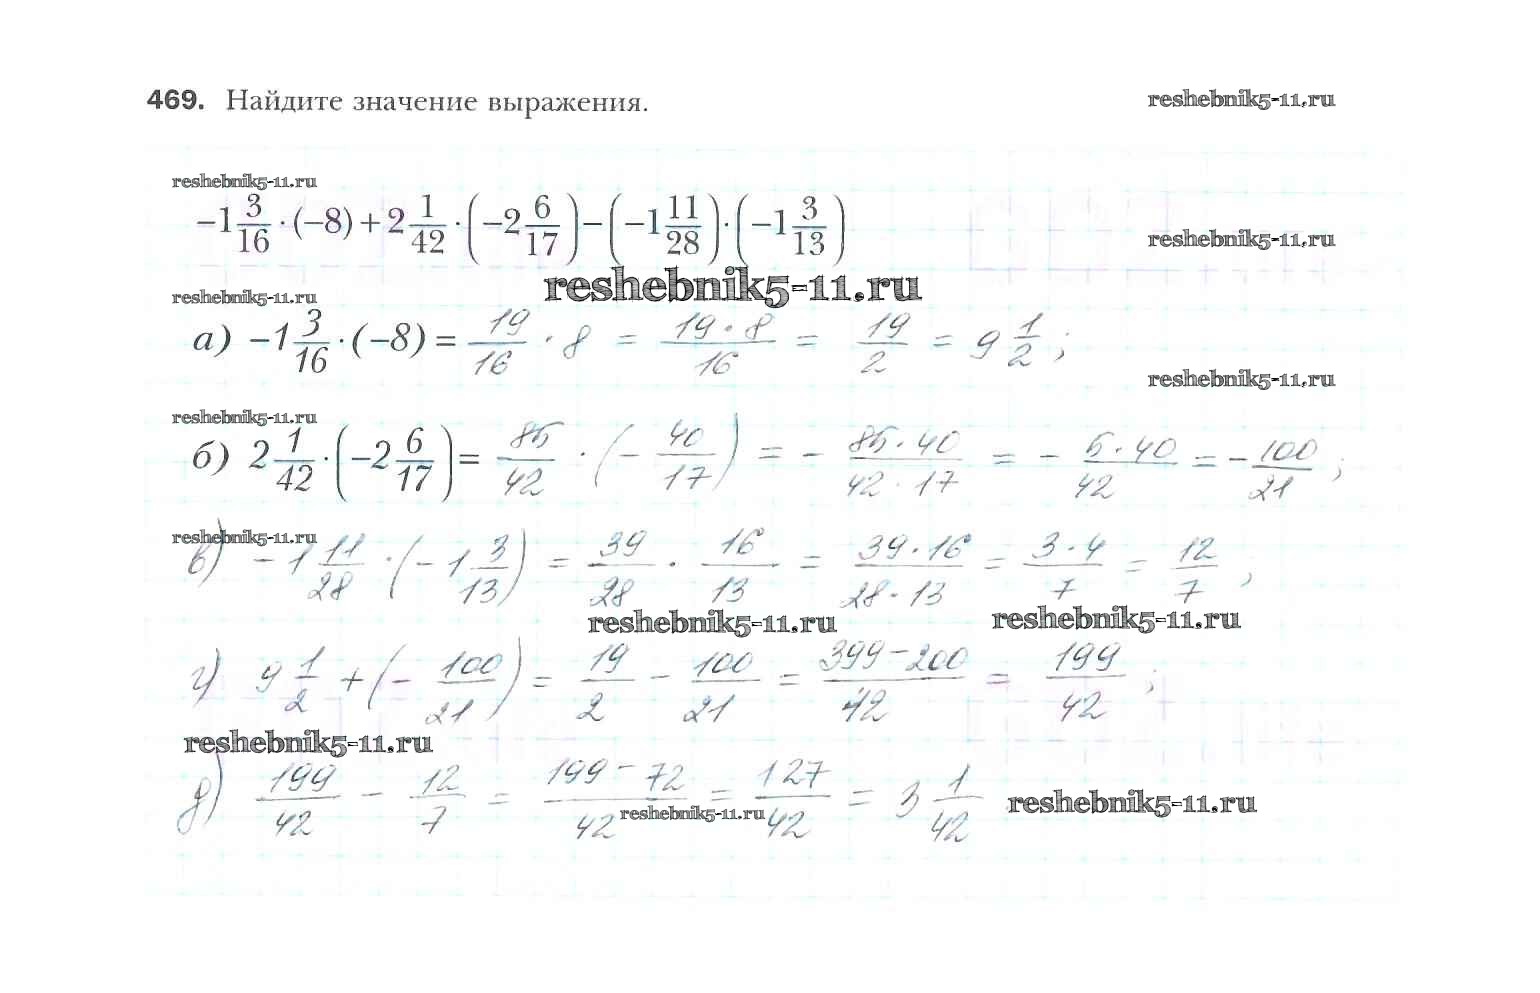 469. Найдите значение выражения. reshebnik5-11.ru
reshebnik5-11.ru
-1 3/16 · (-8) + 2 1/42 · (-2 6/17) - (-1 11/28) · (-1 3/13)
reshebnik5-11.ru
reshebnik5-11.ru
reshebnik5-11.ru
а) -1 3/16 · (-8) = 19/16 · 8 = 19·8/16 = 19/2 = 9 1/2 ;
reshebnik5-11.ru
reshebnik5-11.ru
б) 2 1/42 · (-2 6/17) = 85/42 · (- 40/17) = - 85·40/42·17 = - 5·40/42 = - 100/21 ;
reshebnik5-11.ru
в) -1 11/28 · (-1 3/13) = 39/28 · 16/13 = 39·16/28·13 = 3·4/7 = 12/7 ;
reshebnik5-11.ru reshebnik5-11.ru
г) 9 1/2 + (- 100/21) = 19/2 - 100/21 = 399-200/42 = 199/42 ;
reshebnik5-11.ru
д) 199/42 - 12/7 = 199-72/42 = 127/42 = 3 1/42 reshebnik5-11.ru
reshebnik5-11.ru